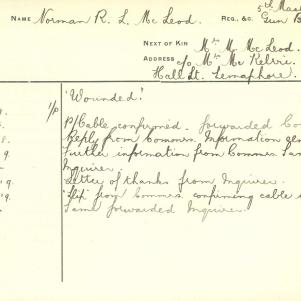 NAME Norman R. L. McLeod. REG., &C. 5th
Gun
NEXT OF KIN Mrs M. McLeod.
ADDRESS c/o Mrs Mc
Hall St. Semaphore.
1/p 'Wounded'.
P/Cable confirmed. forwarded
8. Reply from Commrs. Information
9. Further information from Commrs.
Inquirer.
9. Letter of thanks from Inquirer.
9. from Commrs. confirming cable
Same forwarded Inquirer.